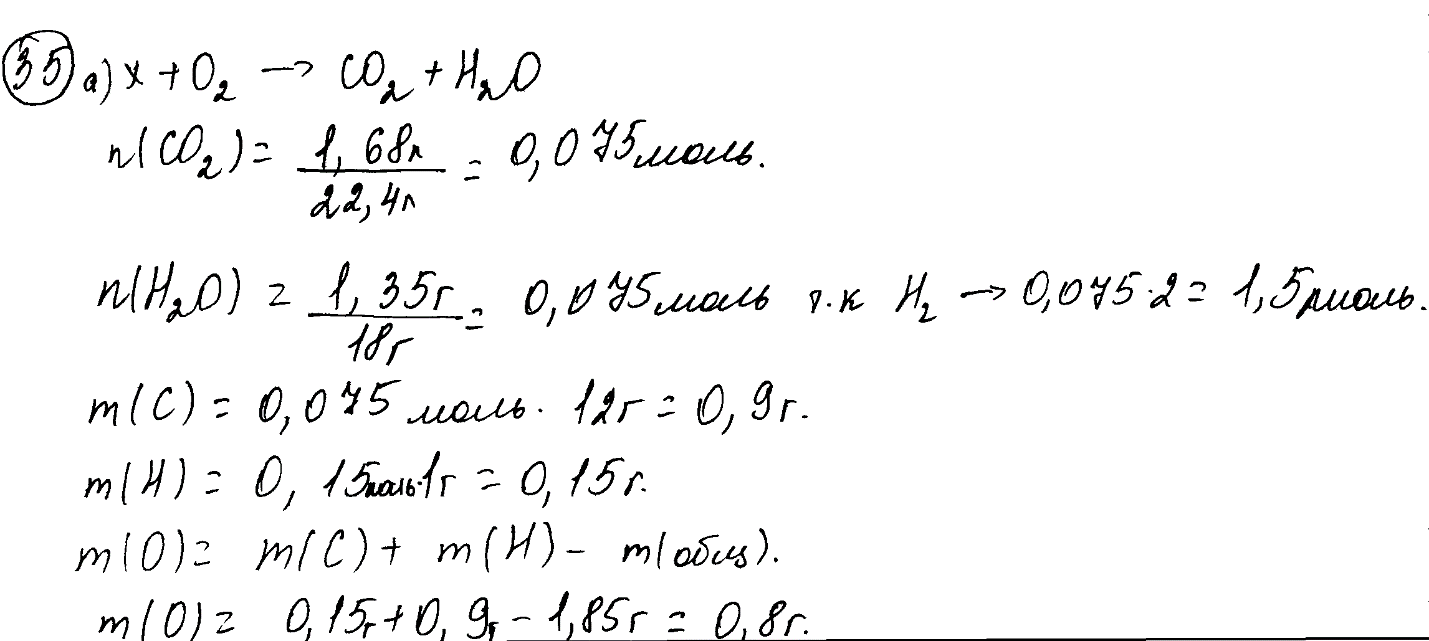 35 а) x + O₂ → CO₂ + H₂O
n(CO₂) = 1,68л / 22,4л = 0,075 моль.
n(H₂O) = 1,35г / 18г = 0,075 моль т.к H₂ → 0,075·2 = 1,5 моль.
m(C) = 0,075 моль · 12г = 0,9г.
m(H) = 0,15моль·1г = 0,15г.
m(O) = m(C) + m(H) - m(общ).
m(O) = 0,15г + 0,9г - 1,85г = 0,8г.